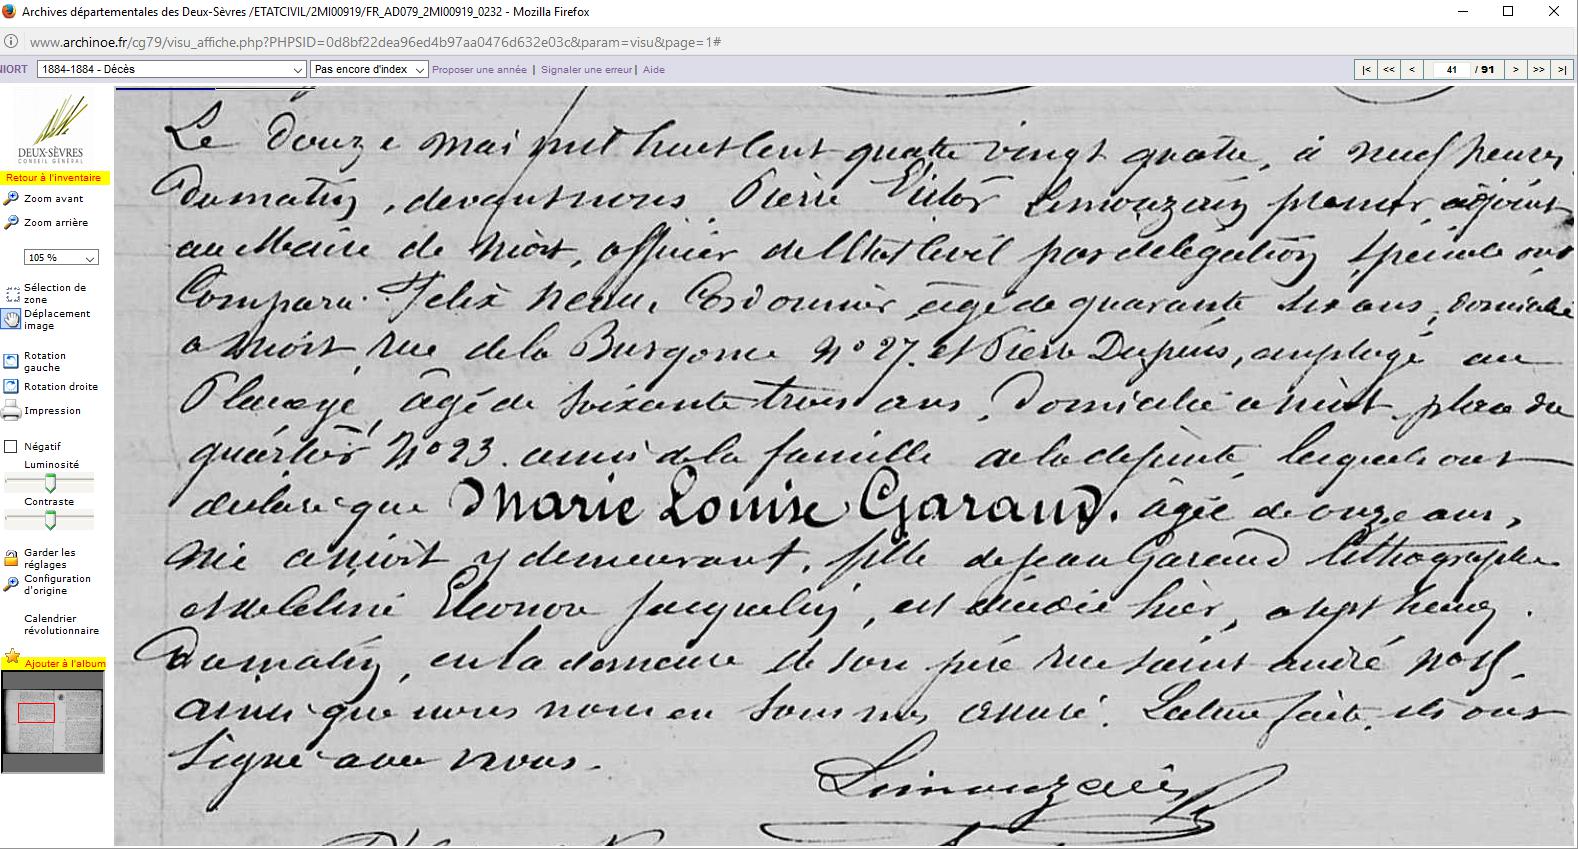 Archives départementales des Deux-Sèvres /ETATCIVIL/2MI00919/FR_AD079_2MI00919_0232 - Mozilla Firefox
www.archinoe.fr/cg79/visu_affiche.php?PHPSID=0d8bf22dea96ed4b97aa0476d632e03c&param=visu&page=1#
NIORT 1884-1884 - Décès Pas encore d'index Proposer une année | Signaler une erreur | Aide |< << < 41 / 91 > >> >|
DEUX-SÈVRES
CONSEIL GÉNÉRAL
Retour à l'inventaire
Zoom avant
Zoom arrière
105 %
Sélection de
zone
Déplacement
image
Rotation
gauche
Rotation droite
Impression
Négatif
Luminosité
Contraste
Garder les
réglages
Configuration
d'origine
Calendrier
révolutionnaire
Ajouter à l'album
Le Douze mai mil huit Cent quatre vingt quatre, à neuf heures
Du matin, devant nous Pierre Victor Limouzain premier adjoint
au Maire de Niort, officier de l'Etat Civil par délégation spéciale ont
Comparu Felix Cordonnier âgé de quarante six ans, domicilié
a Niort, rue de la Burgonce No 27. et Pierre Dupuis, employé au
Placage, âgé de Soixante trois ans, Domicilié a Niort place du
quartier No 23. amis de la famille de la défunte, lesquels ont
déclaré que Marie Louise Garaud. âgée de onze ans,
Née a niort y demeurant, fille de Jean Garaud lithographe
et de Eleonore Jacquelin, est décédée hier, a sept heures.
Du matin, en la demeure de son père rue saint andré
ainsi que nous nous en sommes assuré. Lecture faite, ils ont
Signé avec nous.
Limouzain